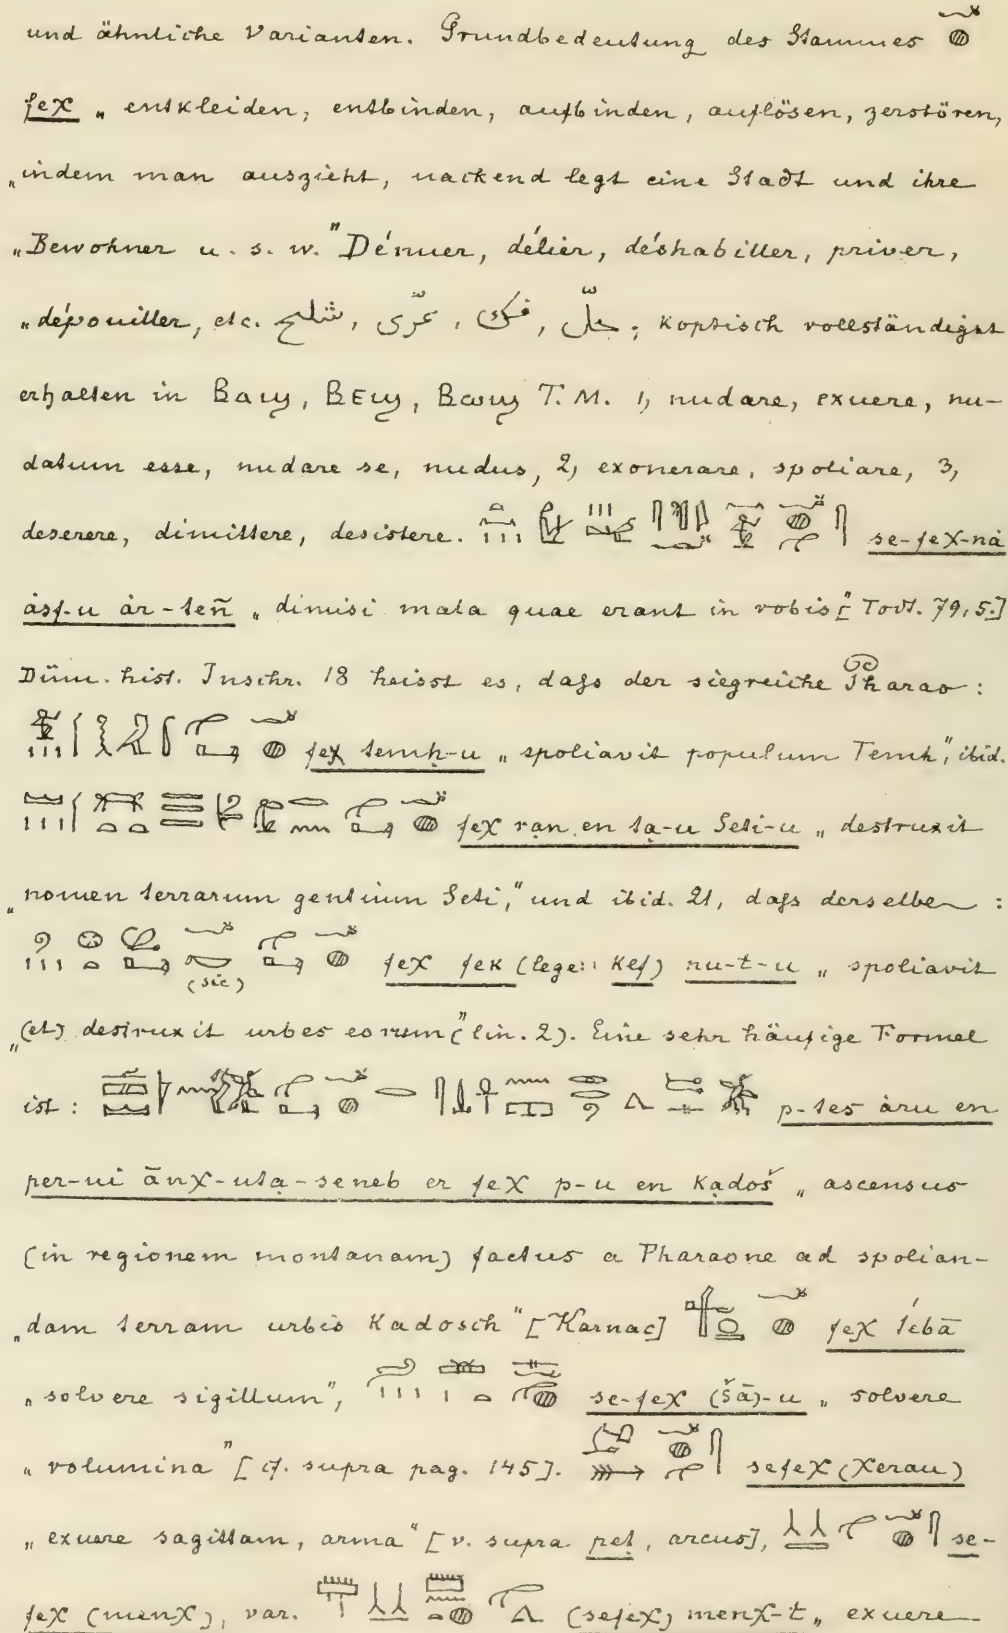 und ähnliche Varianten. Grundbedeutung des Stammes
feχ „entkleiden, entbinden, aufbinden, auflösen, zerstören,
„indem man auszieht, nackend legt eine Stadt und ihre
„Bewohner u. s. w." Dénuer, délier, déshabiller, priver,
„dépouiller, etc. شلح, عرّى, فكّ, حلّ; koptisch vollständigst
erhalten in Ⲃⲁϣ, ⲂⲈϣ, Ⲃⲱϣ T. M. 1, nudare, exuere, nu-
datum esse, nudare se, nudus, 2, exonerare, spoliare, 3,
deserere, dimittere, desistere. se-feχ-nȧ
ȧsf-u ȧr-ten̄ „dimisi mala quae erant in vobis" [Todt. 79,5.]
Düm. hist. Inschr. 18 heisst es, daſs der siegreiche Pharao:
feχ temḥ-u „spoliavit populum Temh", ibid.
feχ rạn en tạ-u Seti-u „destruxit
„nomen terrarum gentium Seti," und ibid. 21, daſs derselbe:
(sic) feχ fek (lege: kef) nu-t-u „spoliavit
„(et) destruxit urbes eorum" (lin. 2). Eine sehr häufige Formel
ist: p-tes ȧru en
per-ui ānχ-utạ-seneb er feχ p-u en Kạdoš „ascensus
(in regionem montanam) factus a Pharaone ad spolian-
„dam terram urbis Kadosch" [Karnac] feχ t́ebā
„solvere sigillum", se-feχ (šā)-u „solvere
„volumina" [cf. supra pag. 145]. sefeχ (χerau)
„exuere sagittam, arma" [v. supra pet, arcus], se-
feχ (menχ), var. (sefeχ) menχ-t „exuere